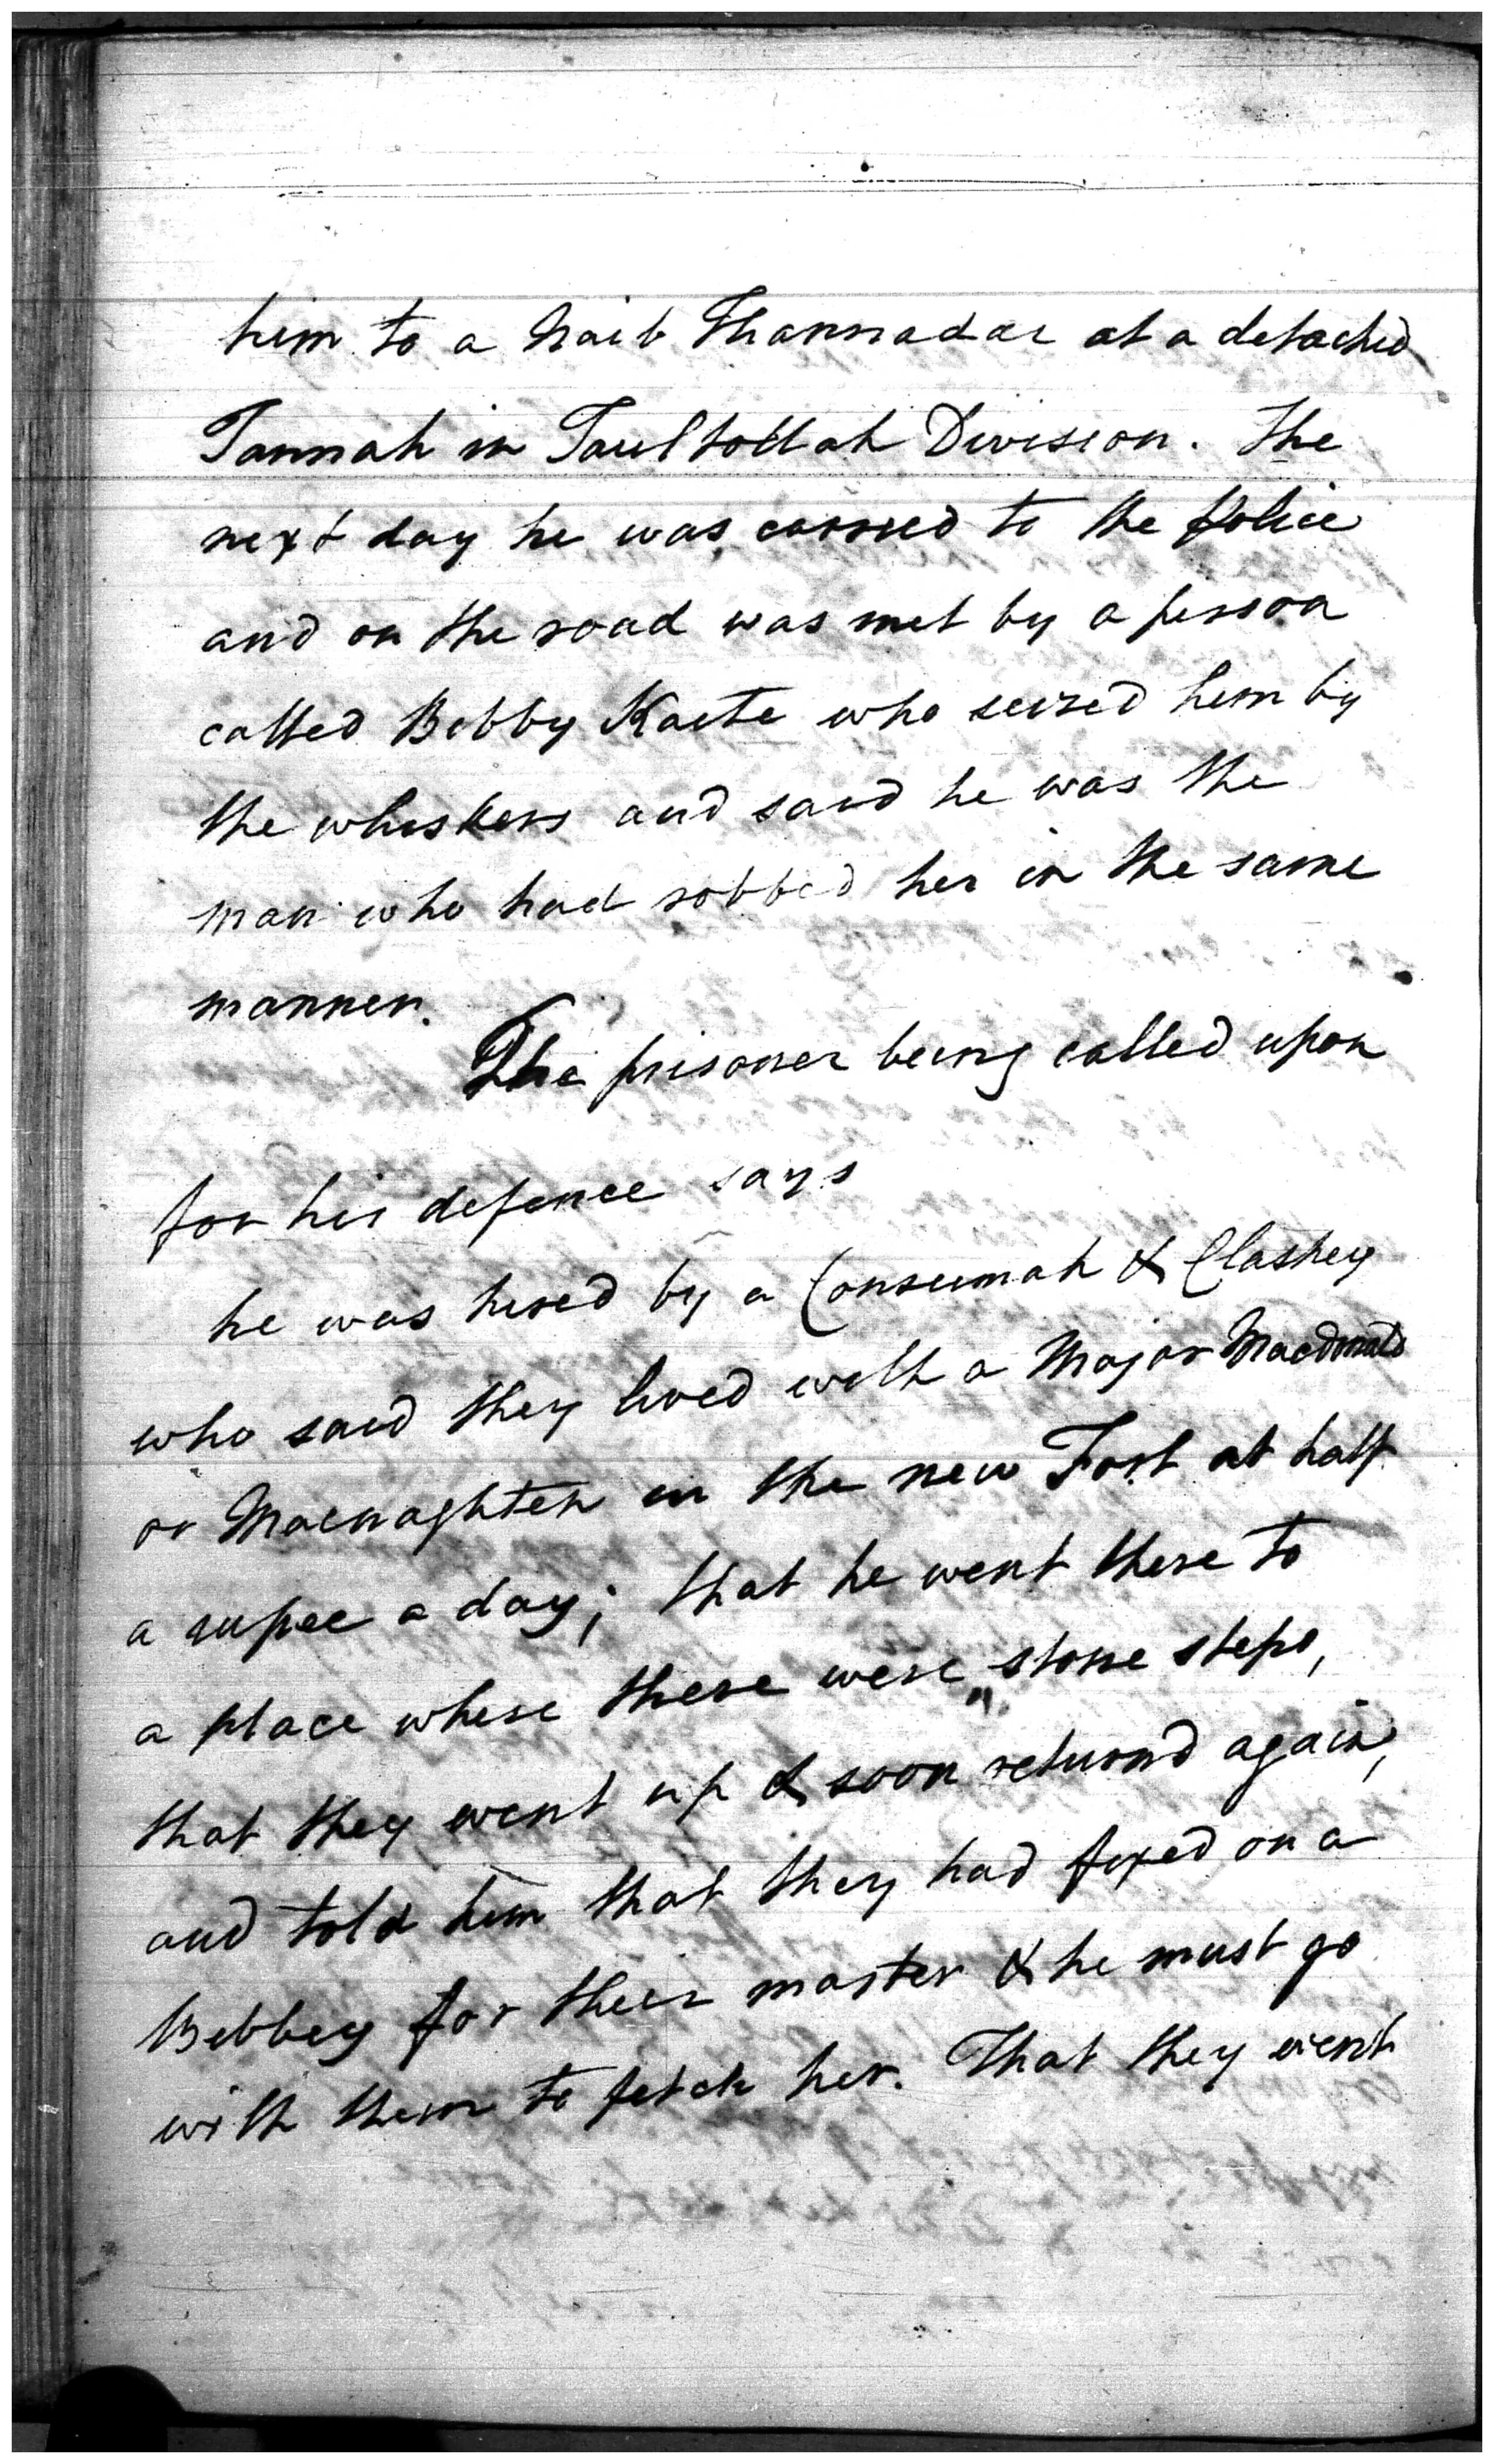 him to a Naib Thannadar at a detached
Tannah in Taultollah Division. The
next day he was carried to the police
and on the road was met by a person
called Bebby Kaete who seized him by
the whiskers and said he was the
man who had robbed her in the same
manner.
The prisoner being called upon
for his defence says
he was hired by a Consumah & Clashey
who said they lived with a Major Macdonald
or Macnaghten in the new Fort at half
a rupee a day; that he went there to
a place where there were stone steps,
that they went up & soon returnd again,
and told him that they had fixed on a
Bebbey for their master & he must go
with them to fetch her. That they went